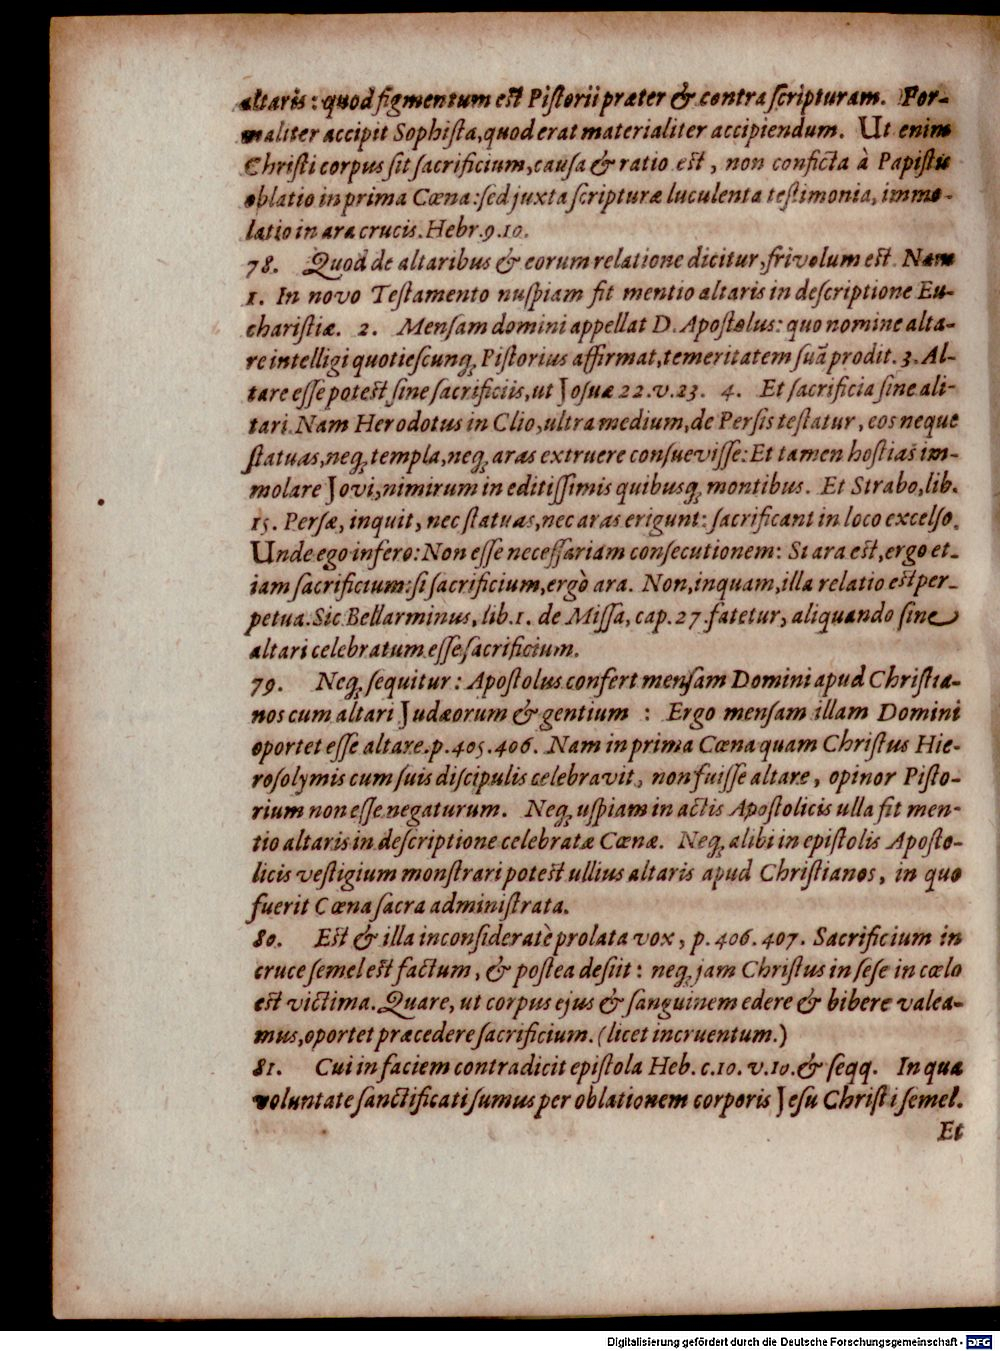 altaris: quod figmentum est Pistorii præter & contra scripturam. For-
maliter accipit Sophista, quod erat materialiter accipiendum. Ut enim
Christi corpus sit sacrificium, causa & ratio est, non conficta à Papistis
oblatio in prima Cœna: sed juxta scripturæ luculenta testimonia, immo-
latio in ara crucis. Hebr. 9. 10.
78. Quod de altaribus & eorum relatione dicitur, frivolum est. Nam
1. In novo Testamento nuspiam fit mentio altaris in descriptione Eu-
charistiæ. 2. Mensam domini appellat D. Apostolus: quo nomine alta-
re intelligi quotiescunq; Pistorius affirmat, temeritatem suã prodit. 3. Al-
tare esse potest sine sacrificiis, ut Josuæ 22. v. 23. 4. Et sacrificia sine ali-
tari. Nam Herodotus in Clio, ultra medium, de Persis testatur, eos neque
statuas, neq; templa, neq; aras extruere consuevisse: Et tamen hostias im-
molare Jovi, nimirum in editissimis quibusq; montibus. Et Strabo, lib.
15. Persæ, inquit, nec statuas, nec aras erigunt: sacrificant in loco excelso.
Unde ego infero: Non esse necessariam consecutionem: Si ara est, ergo et-
iam sacrificium: si sacrificium, ergò ara. Non, inquam, illa relatio est per-
petua. Sic Bellarminus, lib. 1. de Missa, cap. 27. fatetur, aliquando sine
altari celebratum esse sacrificium.
79. Neq; sequitur: Apostolus confert mensam Domini apud Christia-
nos cum altari Judæorum & gentium : Ergo mensam illam Domini
oportet esse altare. p. 405. 406. Nam in prima Cœna quam Christus Hie-
rosolymis cum suis discipulis celebravit, non fuisse altare, opinor Pisto-
rium non esse negaturum. Neq; uspiam in actis Apostolicis ulla fit men-
tio altaris in descriptione celebratæ Cœnæ. Neq; alibi in epistolis Aposto-
licis vestigium monstrari potest ullius altaris apud Christianos, in quo
fuerit Cœna sacra administrata.
80. Est & illa inconsideratè prolata vox, p. 406. 407. Sacrificium in
cruce semel est factum, & postea desiit: neq; jam Christus in sese in cœlo
est victima. Quare, ut corpus ejus & sanguinem edere & bibere valea-
mus, oportet præcedere sacrificium. (licet incruentum.)
81. Cui in faciem contradicit epistola Heb. c. 10. v. 10. & seqq. In qua
voluntate sanctificati sumus per oblationem corporis Jesu Christi semel.
Et
Digitalisierung gefördert durch die Deutsche Forschungsgemeinschaft - DFG